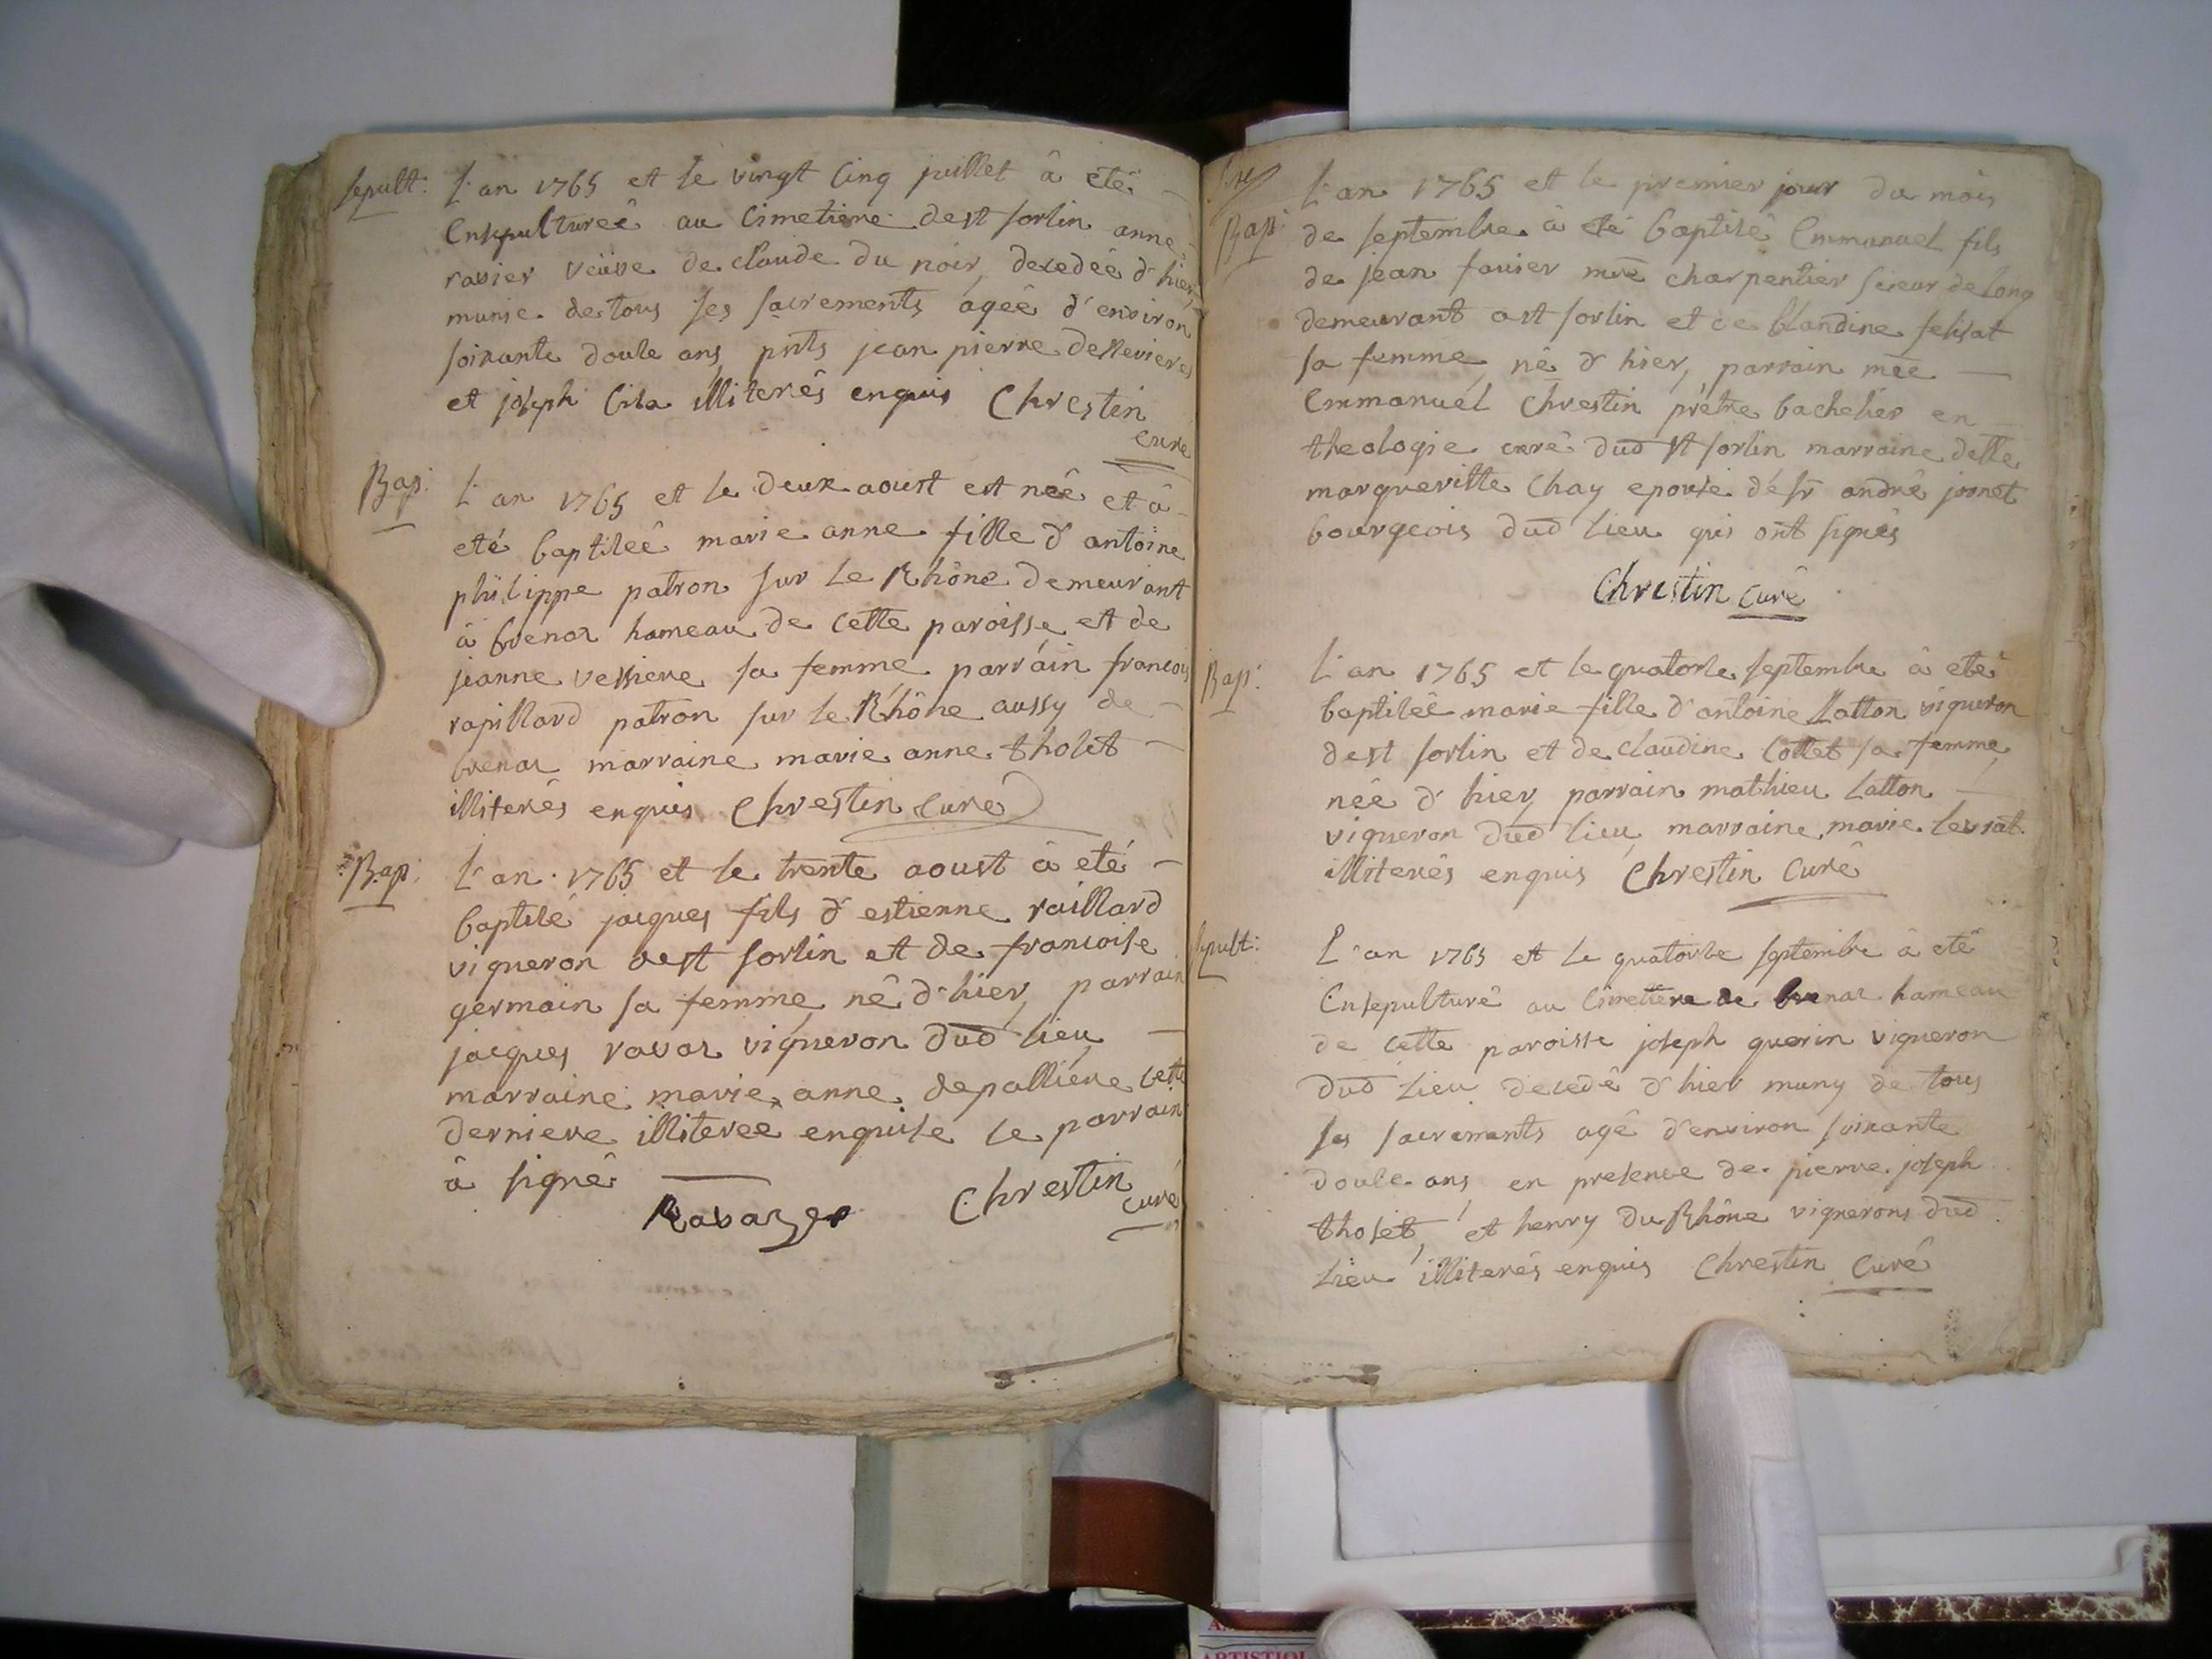 sepult: L'an 1765 et le vingt cinq juillet à eté
Ensepultureé au Cimetiere de st sorlin anne
ravier veuve de claude du noir, decedeé d'hier
munie de tous ses sacrements ageé d'environ
soixante douze ans, pnts jean pierre
et joseph illiterés enquis Chrestin
curé
Bap: L'an 1765 et le deux aoust est neé et à
eté baptiseé marie anne fille d'antoine
philippe patron sur Le Rhône demeurant
à brenaz hameau de cette paroisse et de
jeanne vessiere sa femme parrain francois
rapillard patron sur le Rhône aussy de
brenaz marraine marie anne tholet
illiterés enquis Chrestin Curé
Bap: L'an 1765 et le trente aoust à eté
baptisé jacques fils d'estienne raillard
vigneron de st sorlin et de francoise
germain sa femme né d'hier, parrain
jacques ravaz vigneron dud lieu
marraine marie anne depalliere cette
derniere illitereé enquise le parrain
à signé
Ravaz Chrestin
curé
7bre
Bap: L'an 1765 et le premier jour du mois
de septembre à été baptisé Emmanuel fils
de jean favier mre charpentier scieur de long
demeurant a st sorlin et de blandine
sa femme, né d'hier, parrain mre
Emmanuel Chrestin prètre bachelier en
theologie curé dud st sorlin marraine delle
margueritte Chay epouse de sr andré joonet
bourgeois dud lieu qui ont signés
Chrestin curé
Bap: L'an 1765 et le quatorze septembre à eté
baptiseé marie fille d'antoine Latton vigneron
de st sorlin et de claudine Cottet sa femme,
neé d'hier, parrain mathieu Latton
vigneron dud lieu, marraine marie levrat
illiterés enquis Chrestin Curé
sepult: L'an 1765 et le quatorze septembre à eté
Ensepulturé au Cimetiere de brenaz hameau
de cette paroisse joseph guerin vigneron
dud Lieu decedé d'hier muny de tous
ses sacrements agé d'environ soixante
douze ans en presence de pierre joseph
tholet, et henry du Rhône vignerons dud
Lieu illiterés enquis Chrestin Curé